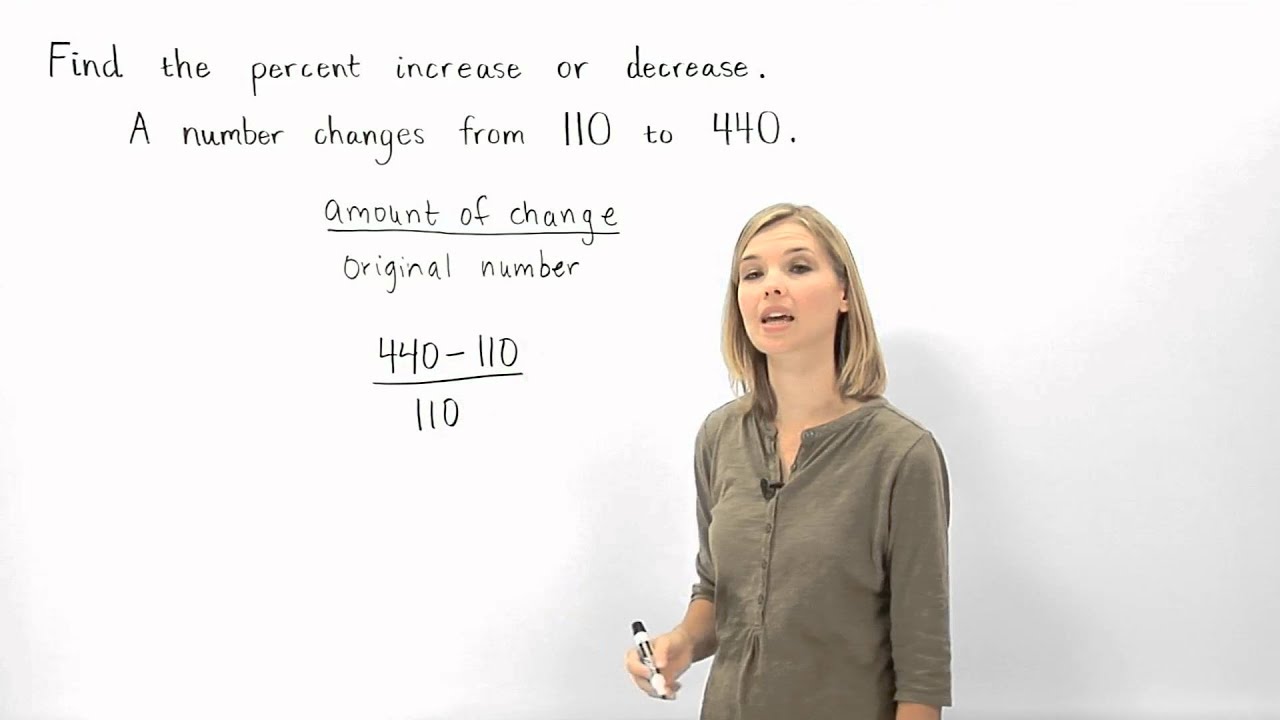 Find the percent increase or decrease.
A number changes from 110 to 440.
amount of change
original number
440 - 110
110